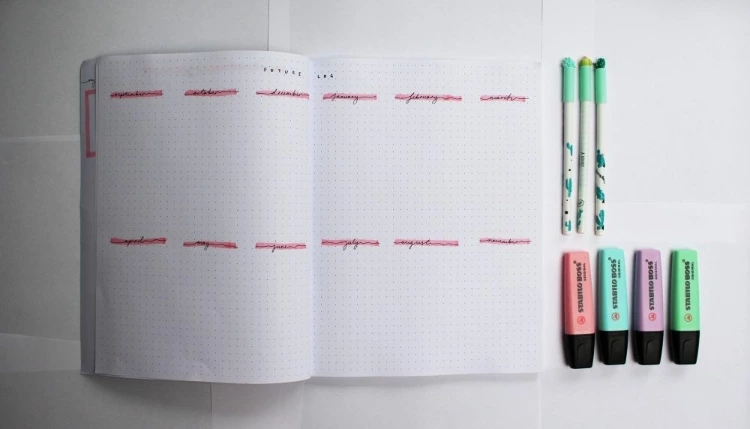 FUTURE LOG
september october december january february march
april may june july august november
STABILO BOSS ORIGINAL
STABILO BOSS ORIGINAL
STABILO BOSS ORIGINAL
STABILO BOSS ORIGINAL